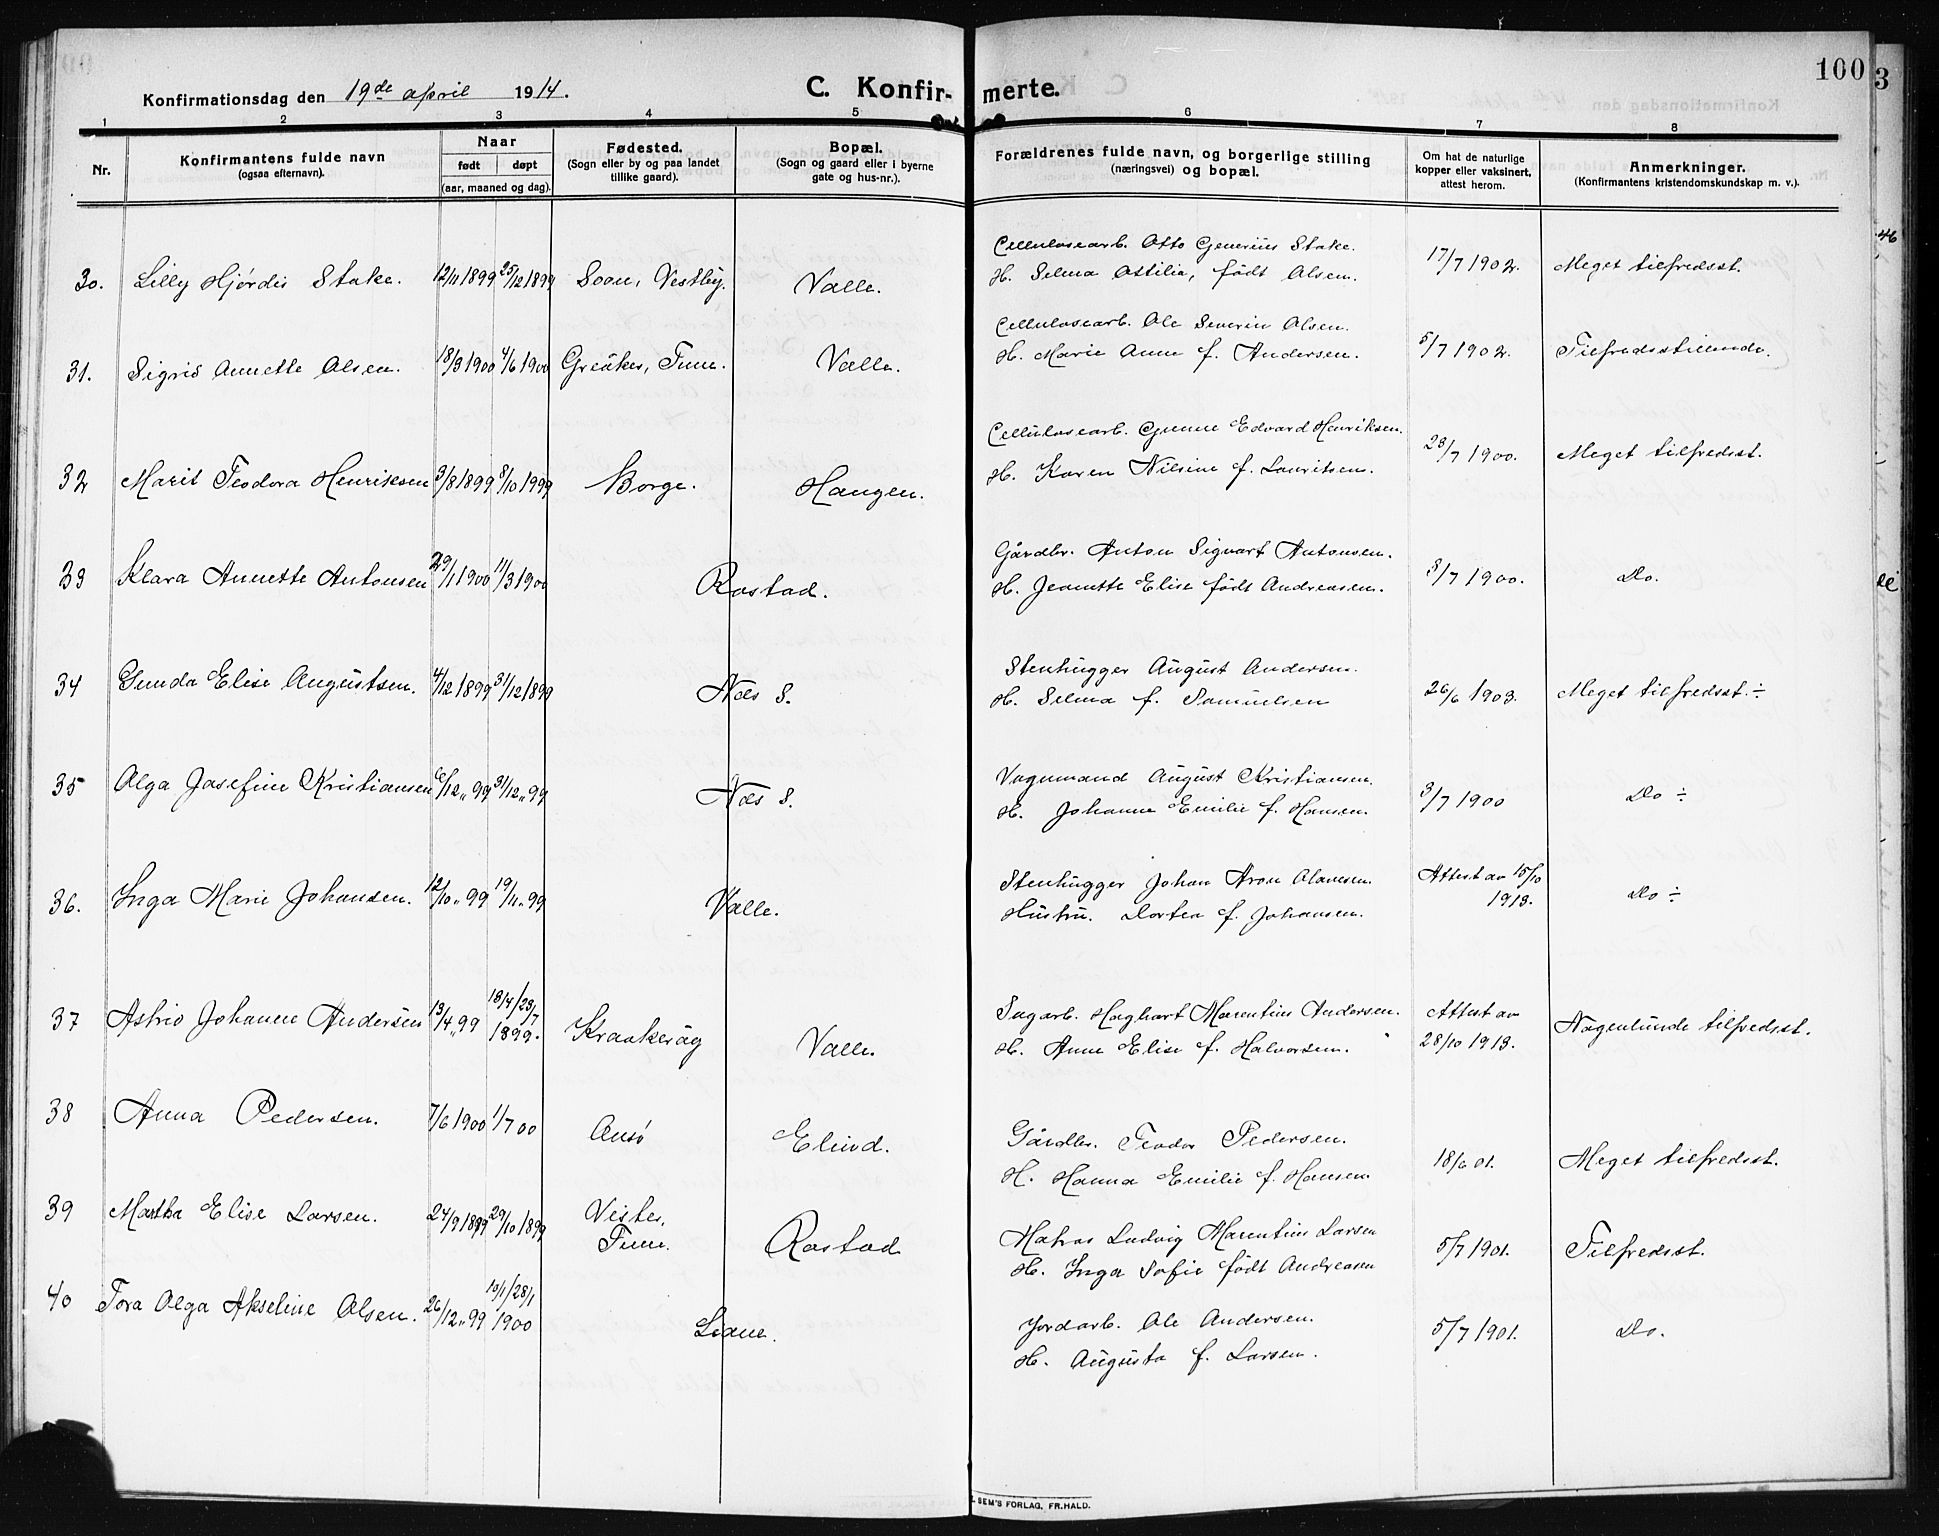 100
3
Konfirmationsdag den 19de april 1914.
C. Konfirmerte.
1 2 3 4 5 6 7 8
Nr.
Konfirmantens fulde navn
(ogsaa efternavn).
Naar
født døpt
(aar, maaned og dag).
Fødested.
(Sogn eller by og paa landet
tillike gaard).
Bopæl.
(Sogn og gaard eller i byerne
gate og hus-nr.).
Forældrenes fulde navn, og borgerlige stilling
(næringsvei) og bopæl.
Om hat de naturlige
kopper eller vaksinert,
attest herom.
Anmerkninger.
(Konfirmantens kristendomskundskap m. v.).
Cellulosearb. Otto Stake.
30. Lilly Hjørdis Stake. 12/11 1899 25/12 1899 Soon, Vestby. Valle. H. Selma Ottilia, født Olsen. 17/7 1902. Meget tilfredsst.
Cellulosearb. Ole Severin Olsen.
31. Sigrid Annette Olsen. 18/3 1900 4/6 1900 Greåker, Tune. Valle. H. Marie Anne f. Andersen. 5/7 1902. Tilfredsstillende.
Cellulosearb. Edvard Henriksen.
32 Marit Teodora Henriksen 3/8 1899 8/10 1999 Borge. Haugen. H. Karen Nilsine f. Lauritsen. 23/7 1900. Meget tilfredsst.
Gårdbr. Anton Sigvart Antonsen.
33 Klara Annette Antonsen 29/1 1900 11/3 1900 Rostad. H. Jeanette Elise født Andreasen. 3/7 1900. Do.
Stenhugger August Andersen.
34 Gunda Elise Augustsen. 4/12 1899 31/12 1899 Næs S. H. Selma f. Samuelsen 26/6 1903. Meget tilfredsst. ÷
Vognmand August Kristiansen.
35 Olga Josefine Kristiansen 6/12 " 99 31/12 " 99 Næs S. H. Johanne Emilie f. Hansen. 3/7 1900 Do ÷
Stenhugger Johan Aron Olavesen. Attest av 15/10
36. Inga Marie Johansen. 12/10 " 99 19/11 " 99 Valle. Hustru. Dortea f. Johansen. 1913. Do ÷
18/4/23/7 Sagarb. Marentius Andersen. Attest av
37 Astrid Johanne Andersen 13/4 " 99 1899. Kraakerøy Valle. H. Anne Elise f. Halvorsen. 28/10 1913. Nogenlunde tilfredsst.
38 Anna Pedersen. 7/6 1900 1/7 00 Onsø Elind. Gårdbr. Teodor Pedersen.
H. Hanna Emilie f. Hansen. 18/6 01. Meget tilfredsst.
39 Martha Elise Larsen. 24/9 1899 29/10 1899 Vister, Tune. Rostad Matros Ludvig Marentius Larsen
H. Inga Sofie født Andreasen 5/7 1901. Tilfredsst.
40 Tora Olga Akseline Olsen. 26/12 " 99 10/1/28/1 1900 Liane. Jordarb. Ole Andersen.
H. Augusta f. Larsen. 5/7 1901. Do.
SEM'S FORLAG, FR.HALD.